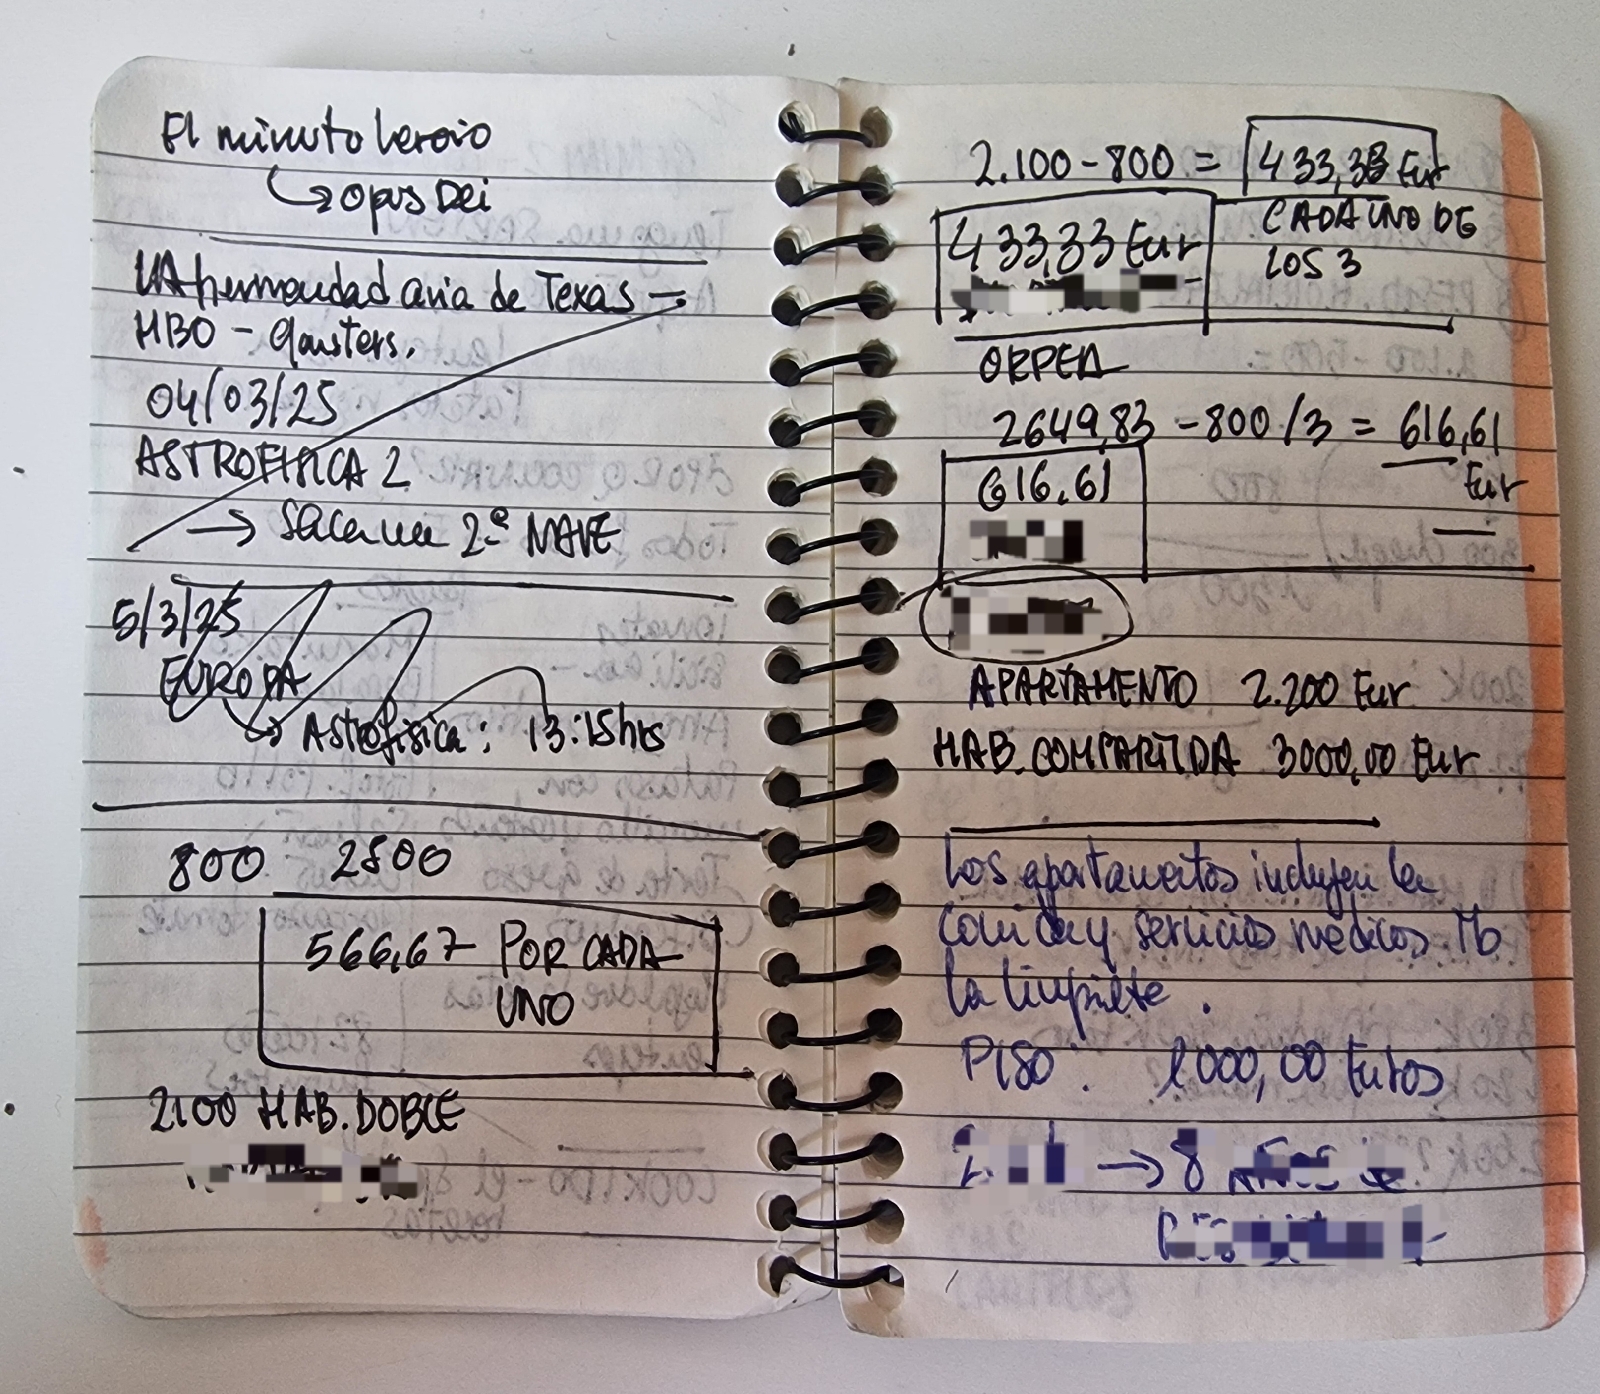 El minuto heroio
↳ opus Dei
LA hermandad aria de Texas –
HBO – gansters.
04/03/25
ASTROFISICA 2
→ Sacar una 2ª NAVE
5/3/25
EUROPA
↳ Astrofisica: 13:15hrs
800 2500
566,67 POR CADA
UNO
2.100 HAB. DOBLE
2.100 – 800 = 433,33 Eur
433,33 Eur
CADA UNO DE
LOS 3
ORPEA
2649,83 – 800 /3 = 616,61
Eur
616,61
APARTAMENTO 2.200 Eur
HAB. COMPARTIDA 3000,00 Eur
Los apartamentos incluyen la
comida y servicios médicos. Tb
la limpieza.
PISO: 1000,00 Euros
→ 8